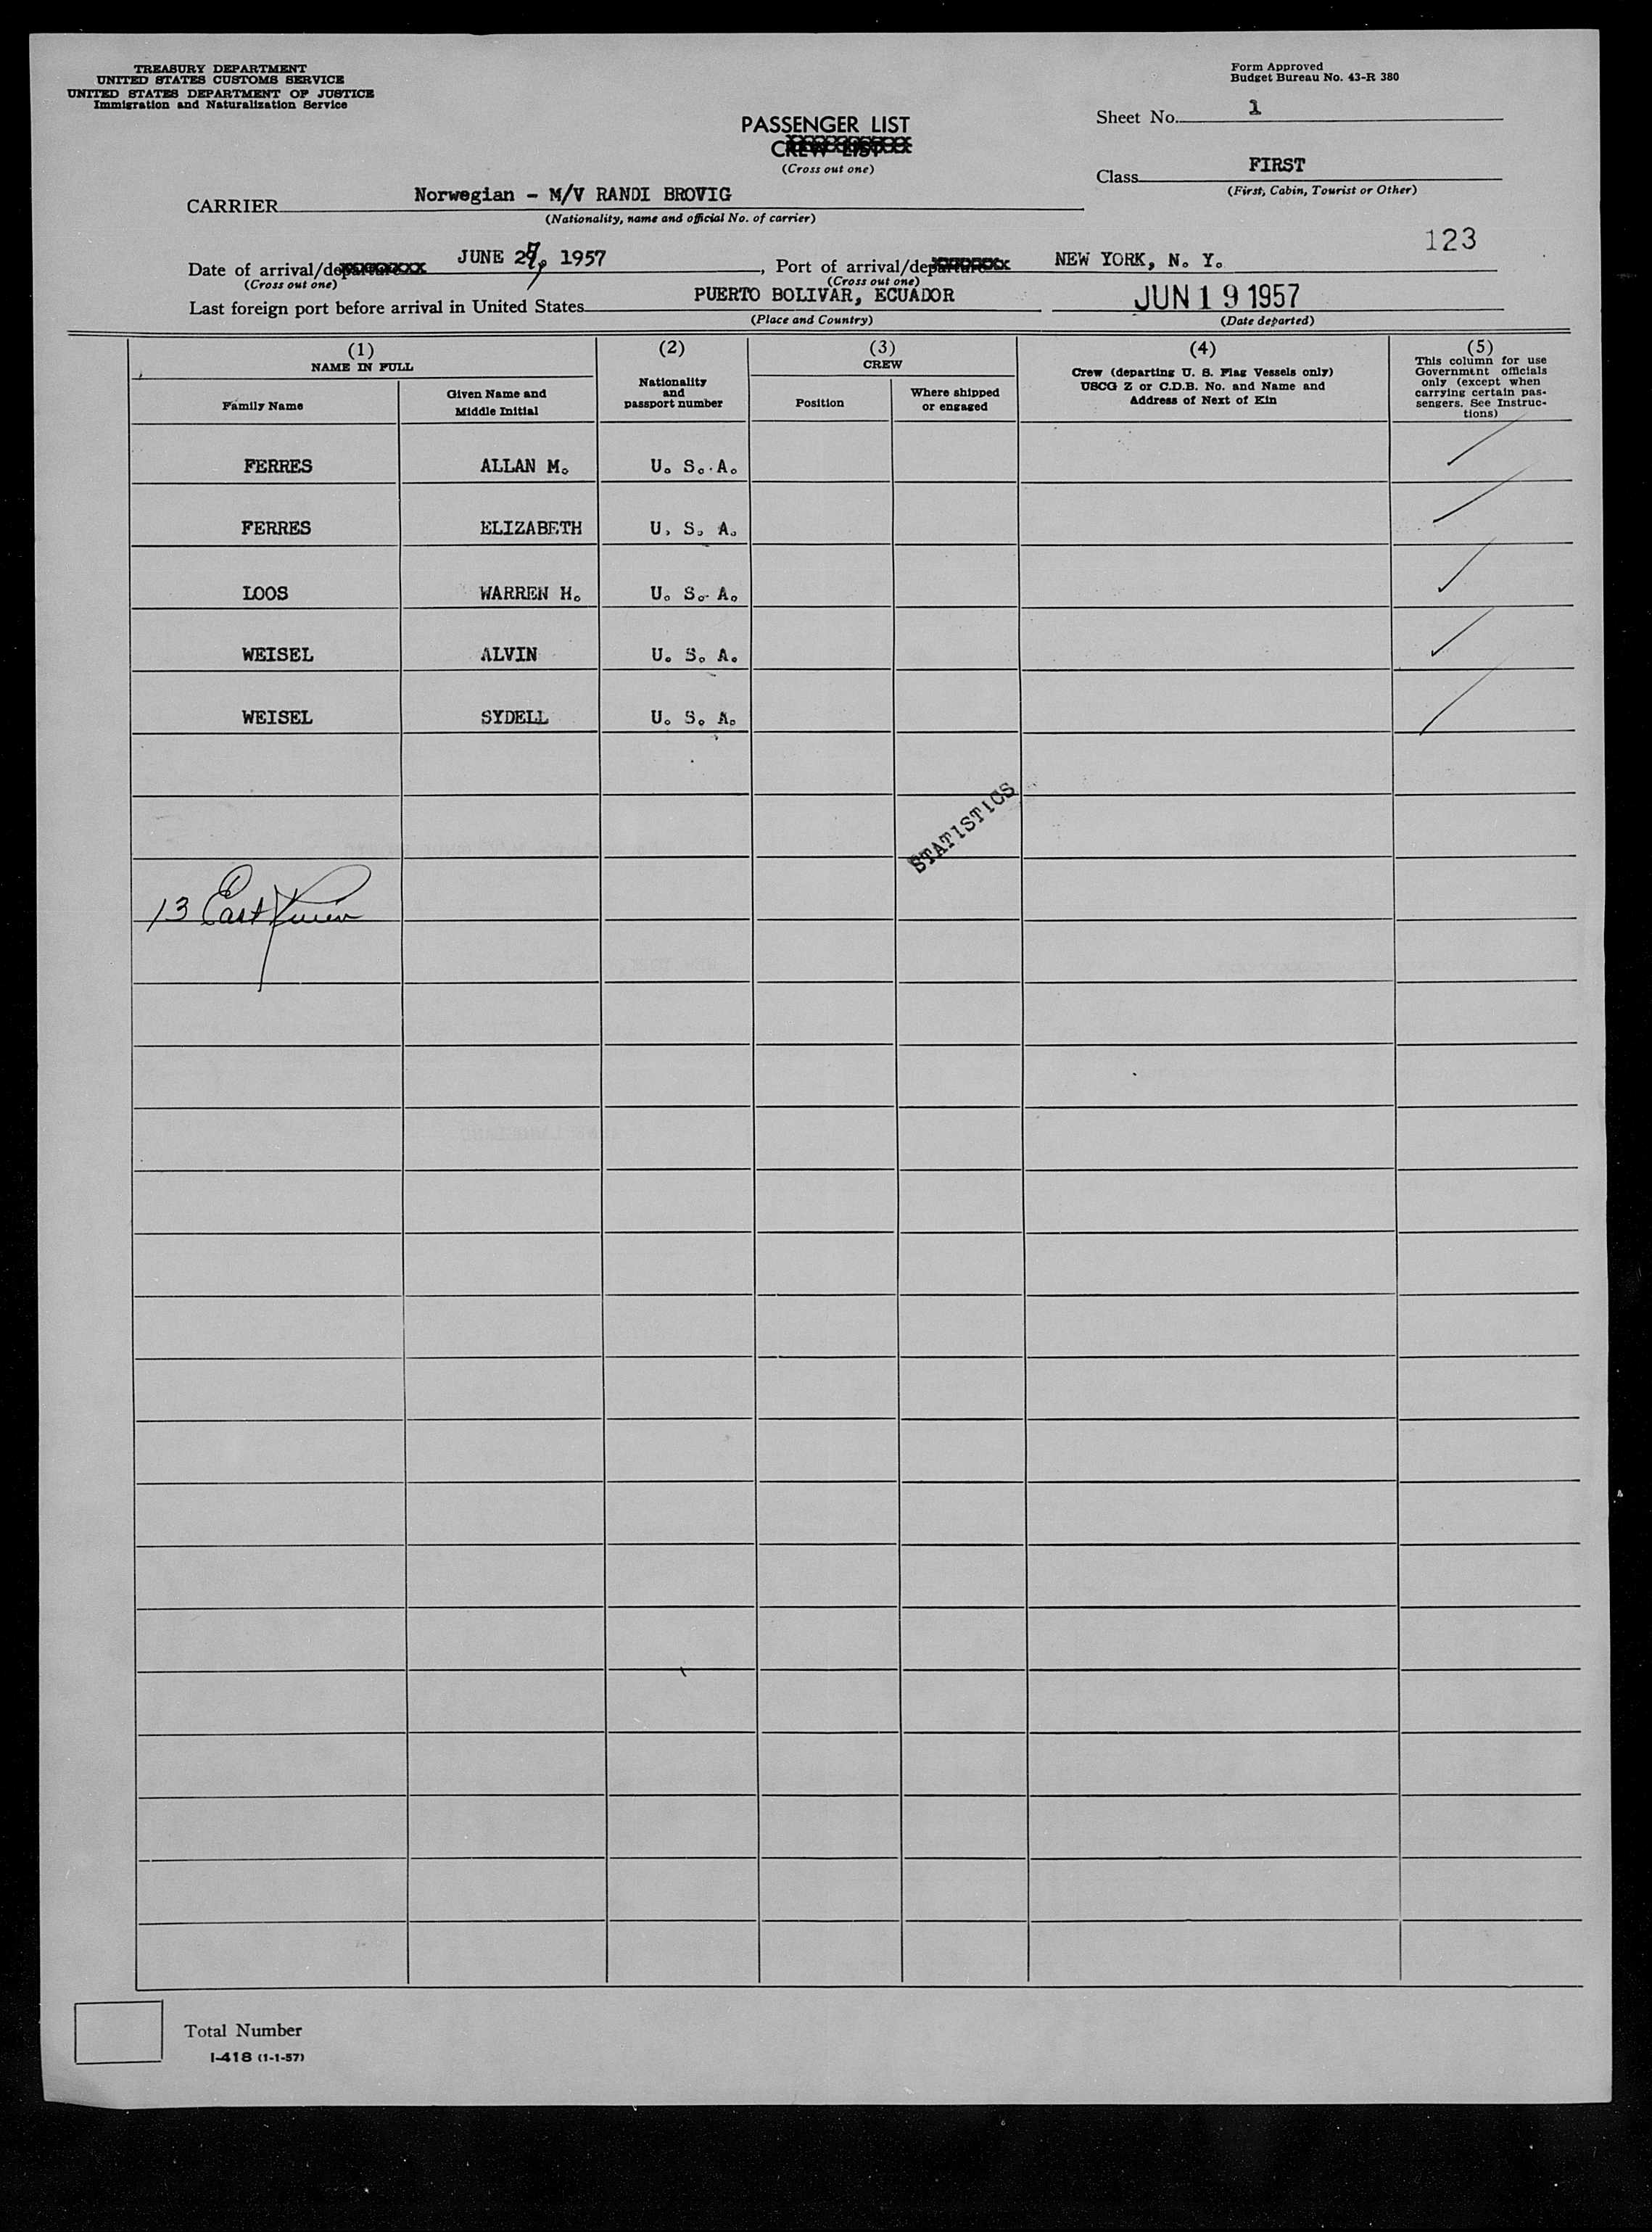 TREASURY DEPARTMENT
UNITED STATES CUSTOMS SERVICE
UNITED STATES DEPARTMENT OF JUSTICE
Immigration and Naturalization Service
Form Approved
Budget Bureau No. 43-R 380
Sheet No. 1
PASSENGER LIST
CREW LIST
(Cross out one)
Class FIRST
(First, Cabin, Tourist or Other)
CARRIER Norwegian - M/V RANDI BROVIG
(Nationality, name and official No. of carrier)
123
Date of arrival/departure JUNE 27, 1957, Port of arrival/departure NEW YORK, N. Y.
(Cross out one) (Cross out one)
Last foreign port before arrival in United States PUERTO BOLIVAR, ECUADOR JUN 19 1957
(Place and Country) (Date departed)
(1) (2) (3) (4) (5)
NAME IN FULL
Family Name
Given Name and
Middle Initial
Nationality
and
passport number
CREW
Position
Where shipped
or engaged
Crew (departing U. S. Flag Vessels only)
USCG Z or C.D.B. No. and Name and
Address of Next of Kin
This column for use
Government officials
only (except when
carrying certain pas-
sengers. See Instruc-
tions)
FERRES ALLAN M. U. S. A.
FERRES ELIZABETH U. S. A.
LOOS WARREN H. U. S. A.
WEISEL ALVIN U. S. A.
WEISEL SYDELL U. S. A.
STATISTICS
13 East
Total Number
I-418 (1-1-57)